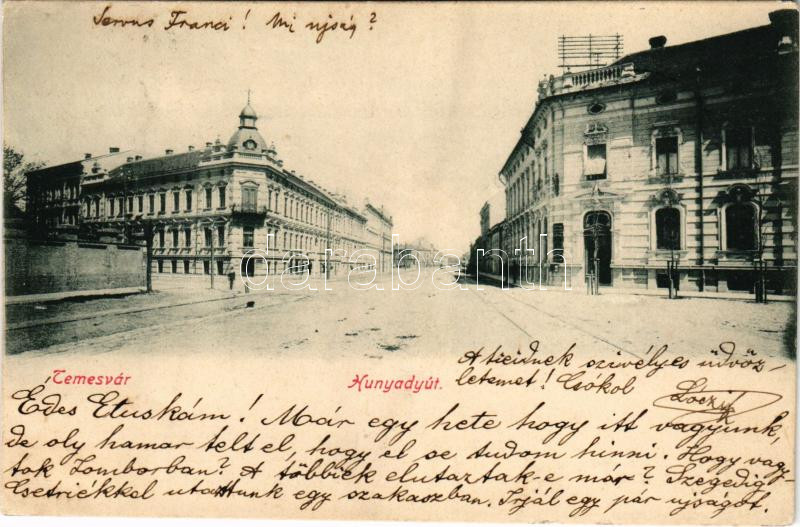 Servus Franci! Mi ujság?
darabanth
Temesvár
Hunyadyút.
A ticidnek szivélyes üdvöz-
letemet! Csókol
Loczi
Édes Etuskám! Már egy hete hogy itt vagyunk,
de oly hamar telt el, hogy el se tudom hinni. Hogy vagy-
tok Zomborban? A többiek elutaztak-e már? Szegedig
Csetriékkel utaztunk egy szakaszban. Irjál egy pár ujságot.